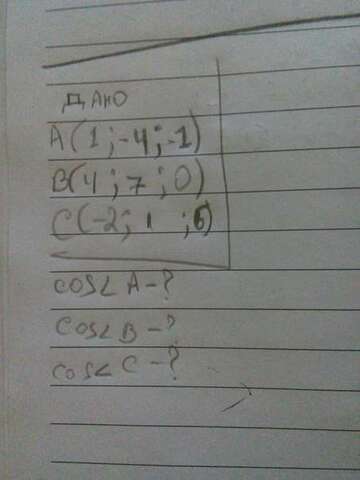 ДАНО
A(1;-4;-1)
B(4;7;0)
C(-2;1;6)
cos∠A-?
cos∠B-?
cos∠C-?